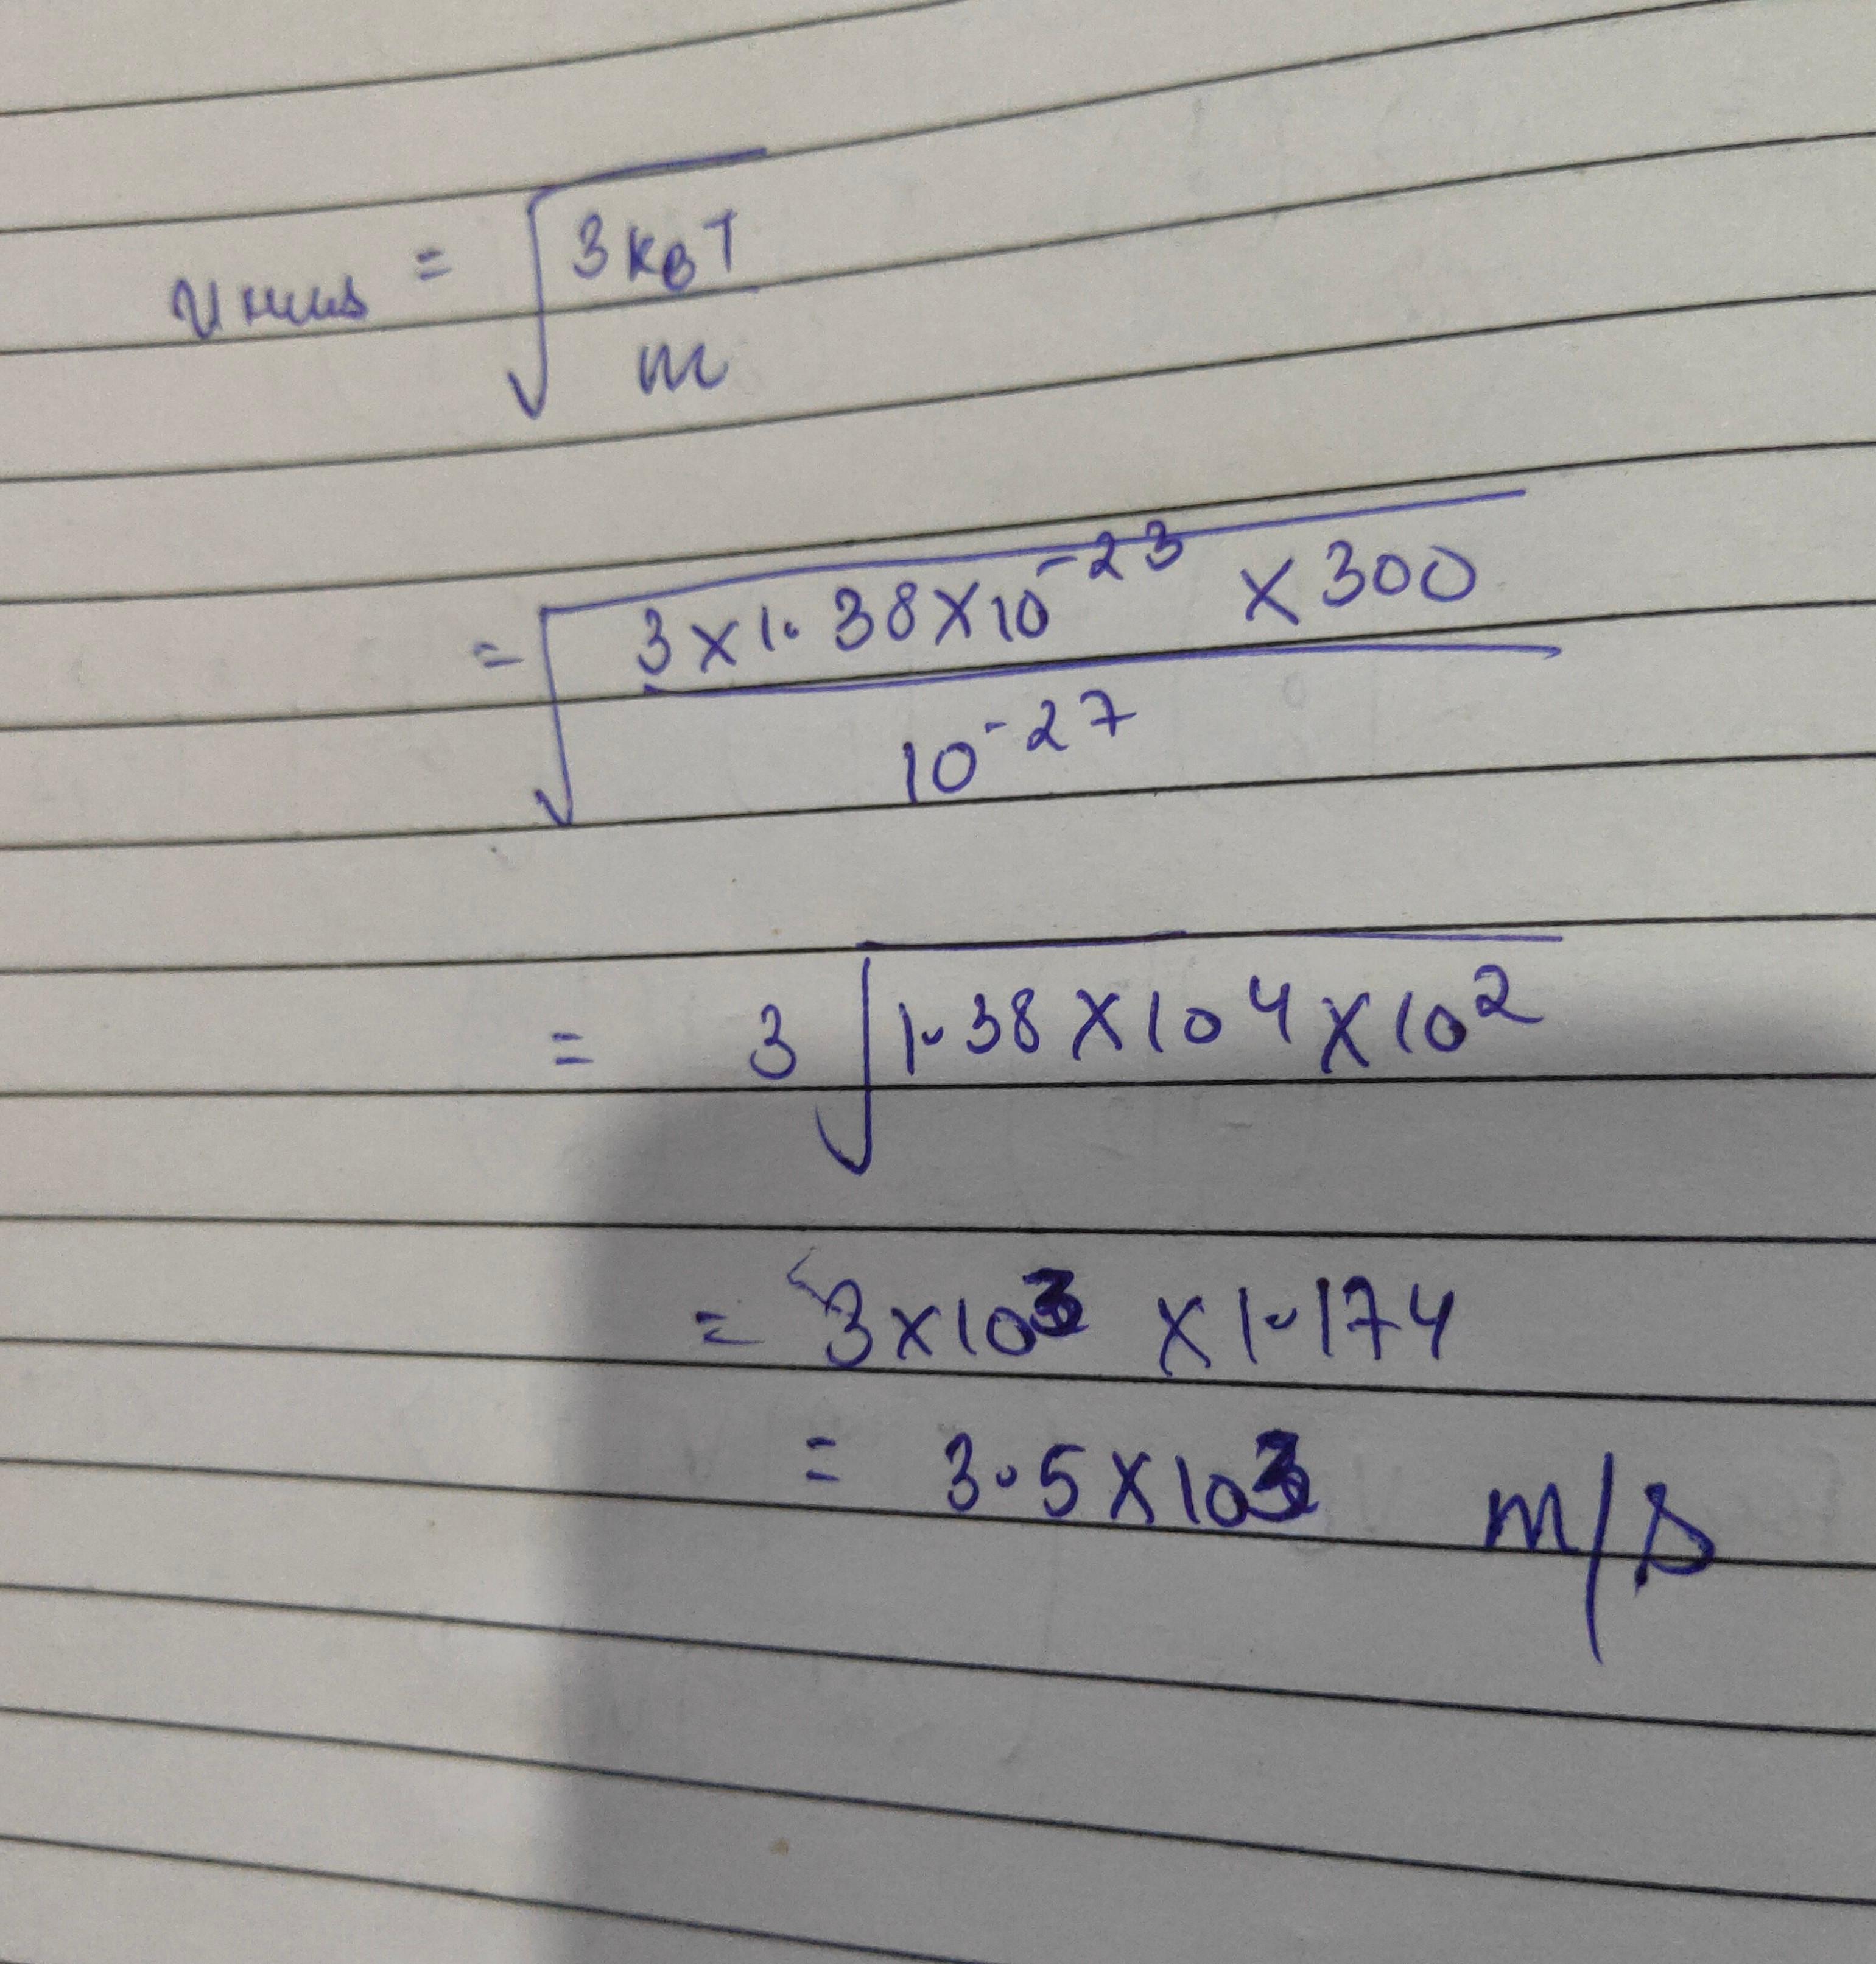 vrms = √(3KBT / m)
= √(3 × 1.38 × 10⁻²³ × 300 / 10⁻²⁷)
= 3 √(1.38 × 10⁴ × 10²)
= 3 × 10³ × 1.174
= 3.5 × 10³ m/s